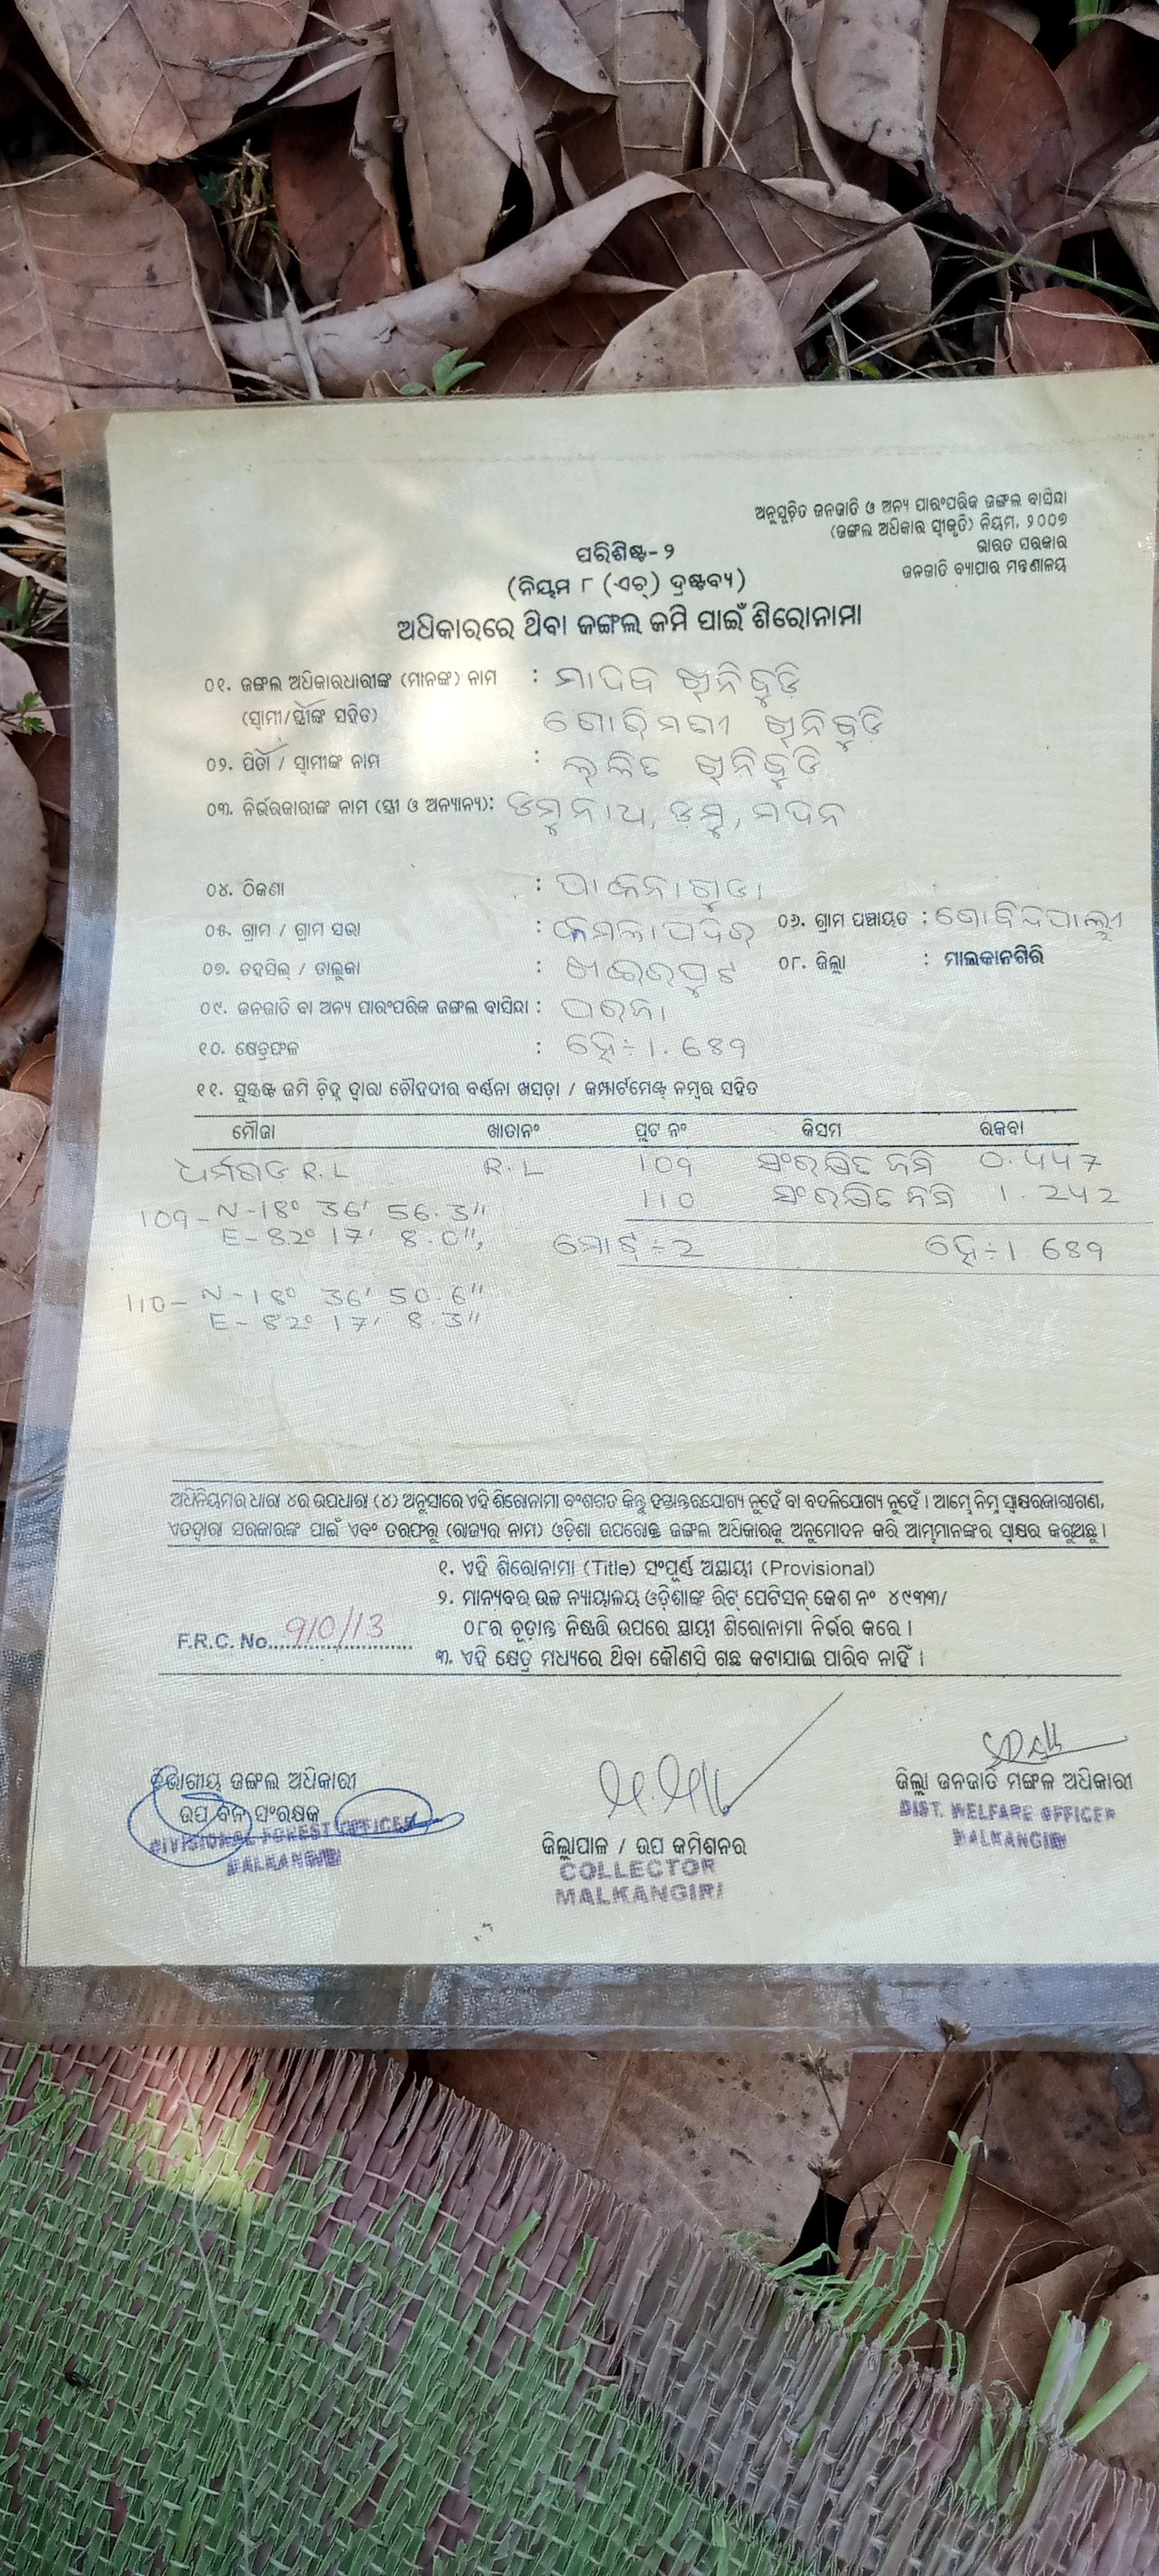 ଅନୁସୂଚିତ ଜନଜାତି ଓ ଅନ୍ୟ ପାରଂପରିକ ଜଙ୍ଗଲ ବାସିନ୍ଦା
(ଜଙ୍ଗଲ ଅଧିକାର ସ୍ୱୀକୃତି) ନିୟମ, ୨୦୦୭
ଭାରତ ସରକାର
ଜନଜାତି ବ୍ୟାପାର ମନ୍ତ୍ରଣାଳୟ
ପରିଶିଷ୍ଟ-୨
(ନିୟମ ୮ (ଏଚ୍) ଦ୍ରଷ୍ଟବ୍ୟ)
ଅଧିକାରରେ ଥିବା ଜଙ୍ଗଲ ଜମି ପାଇଁ ଶିରୋନାମା
୦୧. ଜଙ୍ଗଲ ଅଧିକାରଧାରୀଙ୍କ (ମାନଙ୍କ) ନାମ : ମାଦବ ଖିନିବୁଡି
(ସ୍ୱାମୀ/ସ୍ତ୍ରୀଙ୍କ ସହିତ) ଖିନିବୁଡି
୦୨. ପିତା / ସ୍ୱାମୀଙ୍କ ନାମ : ଖିନିବୁଡି
୦୩. ନିର୍ଭରକାରୀଙ୍କ ନାମ (ସ୍ତ୍ରୀ ଓ ଅନ୍ୟାନ୍ୟ): ଡମ୍ବୁନାଥ, ଡମ୍ବୁ, ମଦନ
୦୪. ଠିକଣା : ପାକନାଗୁଡା
୦୫. ଗ୍ରାମ / ଗ୍ରାମ ସଭା : କମଳାପଦର ୦୬. ଗ୍ରାମ ପଞ୍ଚାୟତ : ଗୋବିନ୍ଦପାଲ୍ଲୀ
୦୭. ତହସିଲ୍ / ତାଲୁକା : ଖଇରପୁଟ ୦୮. ଜିଲ୍ଲା : ମାଲକାନଗିରି
୦୯. ଜନଜାତି ବା ଅନ୍ୟ ପାରଂପରିକ ଜଙ୍ଗଲ ବାସିନ୍ଦା : ପରଜା
୧୦. କ୍ଷେତ୍ରଫଳ : ହେ÷1.689
୧୧. ସୁସ୍ପଷ୍ଟ ଜମି ଚିହ୍ନ ଦ୍ୱାରା ଚୌହଦୀର ବର୍ଣ୍ଣନା ଖସଡ଼ା / କମ୍ପାର୍ଟମେଣ୍ଟ ନମ୍ବର ସହିତ
ମୌଜା ଖାତାନଂ ପ୍ଲଟ ନଂ କିସମ ରକବା
ଧର୍ମଗଡ R.L R.L 109 ସଂରକ୍ଷିତ ଜମି 0.447
110 ସଂରକ୍ଷିତ ଜମି 1.242
109- N-18° 36' 56.3"
E-82° 17' 8.0",
ମୋଟ÷2 ହେ÷1 689
110- N-18° 36' 50.6"
E-82° 17' 8.3"
ଅଧିନିୟମର ଧାରା ୪ର ଉପଧାରା (୪) ଅନୁସାରେ ଏହି ଶିରୋନାମା ବଂଶଗତ କିନ୍ତୁ ହସ୍ତାନ୍ତରଯୋଗ୍ୟ ନୁହେଁ ବା ବଦଳିଯୋଗ୍ୟ ନୁହେଁ । ଆମ୍ଭେ ନିମ୍ନ ସ୍ୱାକ୍ଷରକାରୀଗଣ,
ଏତଦ୍ୱାରା ସରକାରଙ୍କ ପାଇଁ ଏବଂ ତରଫରୁ (ରାଜ୍ୟର ନାମ) ଓଡ଼ିଶା ଉପରୋକ୍ତ ଜଙ୍ଗଲ ଅଧିକାରକୁ ଅନୁମୋଦନ କରି ଆମ୍ଭମାନଙ୍କର ସ୍ୱାକ୍ଷର କରୁଅଛୁ ।
୧. ଏହି ଶିରୋନାମା (Title) ସଂପୂର୍ଣ୍ଣ ଅସ୍ଥାୟୀ (Provisional)
୨. ମାନ୍ୟବର ଉଚ୍ଚ ନ୍ୟାୟାଳୟ ଓଡ଼ିଶାଙ୍କ ରିଟ୍ ପେଟିସନ୍ କେଶ ନଂ ୪୯୩୩/
୦୮ର ଚୂଡ଼ାନ୍ତ ନିଷ୍ପତ୍ତି ଉପରେ ସ୍ଥାୟୀ ଶିରୋନାମା ନିର୍ଭର କରେ ।
F.R.C. No. 910/13
୩. ଏହି କ୍ଷେତ୍ର ମଧ୍ୟରେ ଥିବା କୌଣସି ଗଛ କଟାଯାଇ ପାରିବ ନାହିଁ ।
ବିଭାଗୀୟ ଜଙ୍ଗଲ ଅଧିକାରୀ
ଉପ ବନ ସଂରକ୍ଷକ
DIVISIONAL FOREST OFFICER
MALKANGIRI
ଜିଲ୍ଲାପାଳ / ଉପ କମିଶନର
COLLECTOR
MALKANGIRI
ଜିଲ୍ଲା ଜନଜାତି ମଙ୍ଗଳ ଅଧିକାରୀ
DIST. WELFARE OFFICER
MALKANGIRI